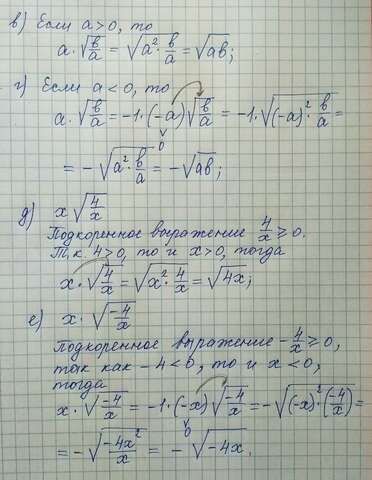 в) Если a>0, то
a·√(b/a) = √(a²·b/a) = √(ab);
г) Если a<0, то
a·√(b/a) = -1·(-a)√(b/a) = -1·√((-a)²·b/a) =
= -√(a²·b/a) = -√(ab);
д) x√(4/x)
Подкоренное выражение 4/x ≥ 0.
Т.к. 4>0, то и x>0, тогда
x·√(4/x) = √(x²·4/x) = √(4x);
е) x·√(-4/x)
Подкоренное выражение -4/x ≥ 0,
так как -4<0, то и x<0,
тогда
x·√(-4/x) = -1·(-x)√(-4/x) = -√((-x)²·(-4/x)) =
= -√(-4x²/x) = -√(-4x).